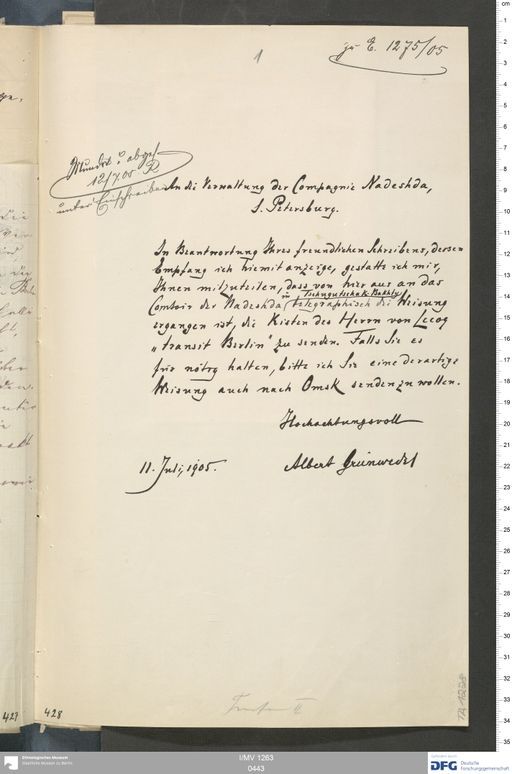 1
zu E. 1275/05
Mundirt u. abges.
12/7.05 R
unter Einschreiben
An die Verwaltung der Compagnie Nadeshda,
S. Petersburg.
In Beantwortung Ihres freundlichen Schreibens, dessen
Empfang ich hiemit anzeige, gestatte ich mir,
Ihnen mitzuteilen, dass von hier aus an das
Comtoir der Nadeshda in Tschugutschak Bakhty telegraphisch die Weisung
ergangen ist, die Kisten des Herrn von Lecoq
„transit Berlin" zu senden. Falls Sie es
für nötig halten, bitte ich Sie eine derartige
Weisung auch nach Omsk senden zu wollen.
Hochachtungsvoll
11. Juli, 1905.
Albert Grünwedel
427
428
TA 1228
Ethnologisches Museum
Staatliche Museen zu Berlin
I/MV 1263
0443
DFG Deutsche
Forschungsgemeinschaft